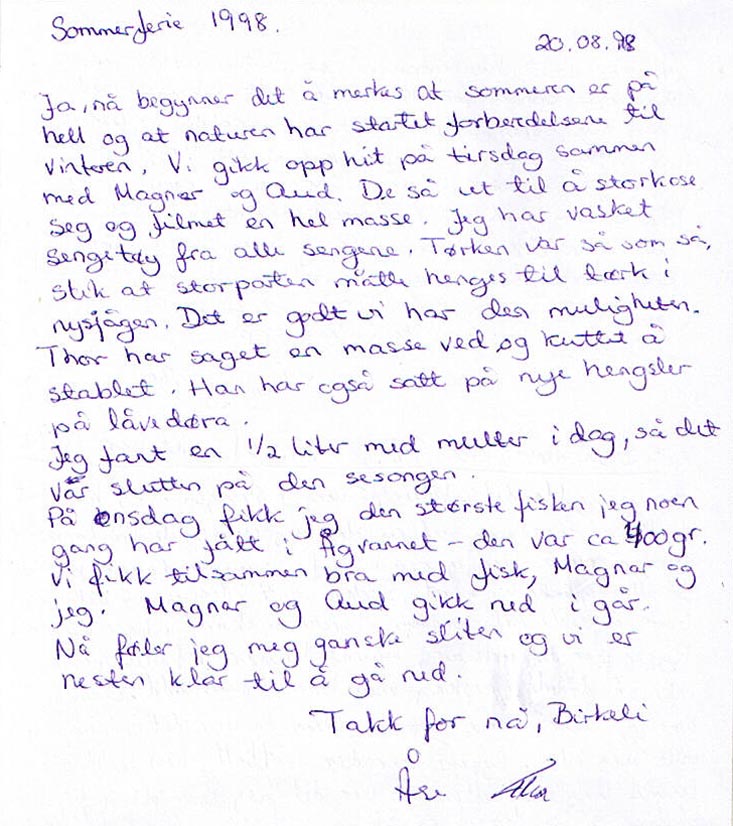 Sommerferie 1998.
20.08.98
Ja, nå begynner det å merkes at sommeren er på
hell og at naturen har startet forberedelsene til
vinteren. Vi gikk opp hit på tirsdag sammen
med Magnar og Aud. De så ut til å storkose
seg og filmet en hel masse. Jeg har vasket
sengetøy fra alle sengene. Tørken var så som så,
slik at storparten måtte henges til tørk i
nysjågen. Det er godt vi har den muligheten.
Thor har saget en masse ved og kuttet å
stablet. Han har også satt på nye hengsler
på låvedøra.
Jeg fant en 1/2 liter med multer i dag, så det
var slutten på den sesongen.
På onsdag fikk jeg den største fisken jeg noen
gang har fått i Ågvannet – den var ca 400gr.
Vi fikk tilsammen bra med fisk, Magnar og
jeg. Magnar og Aud gikk ned i går.
Nå føler jeg meg ganske sliten og vi er
nesten klar til å gå ned.
Takk for nå, Birkeli
Åse Thor